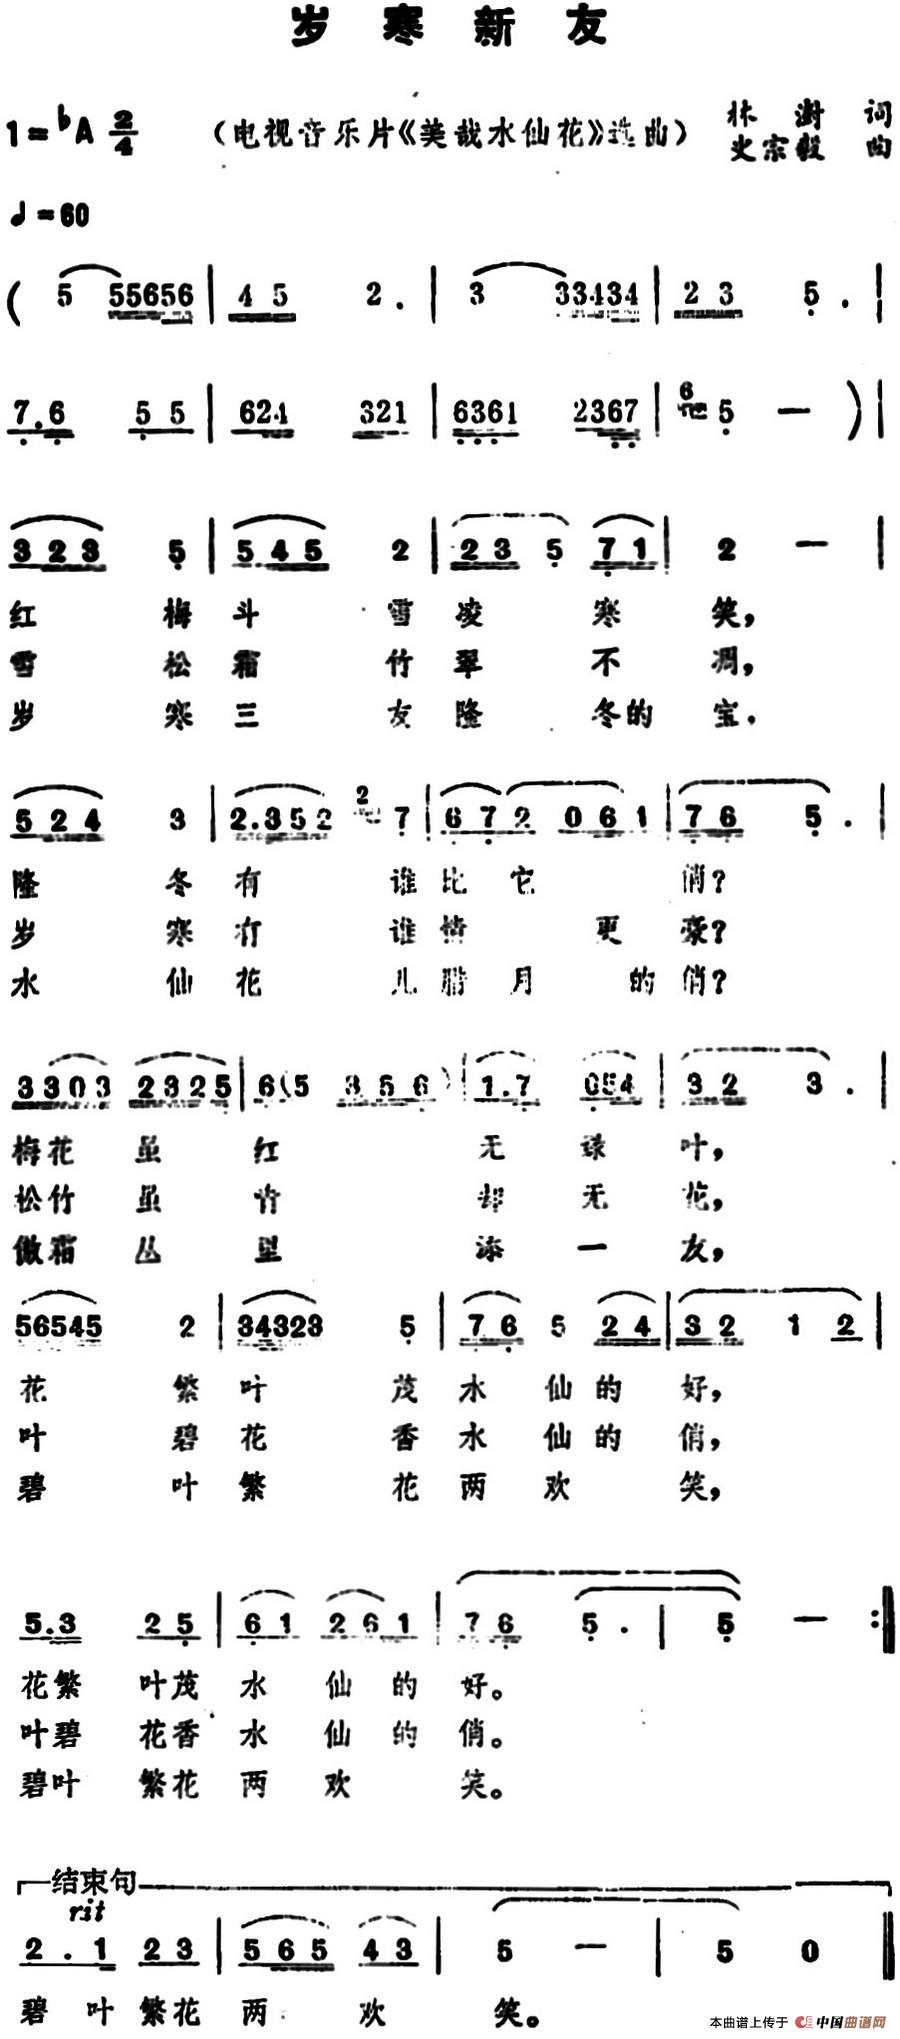 岁寒新友
1=♭A 2/4 （电视音乐片《美哉水仙花》选曲） 林澍 词
史宗毅 曲
♩=60
( 5 556556 | 4 5 2 . | 3 334334 | 2 3 5 . |
7.6 5 5 | 624 321 | 6361 2367 | 6 5 — ) |
3 2 3 5 | 5 4 5 2 | 2 3 5 7 1 | 2 — |
红 梅 斗 雪 凌 寒 笑，
雪 松 霜 竹 翠 不 凋，
岁 寒 三 友 隆 冬的 宝，
5 2 4 3 | 2.352 2 7 | 6 7 2 0 6 1 | 7 6 5 . |
隆 冬 有 谁 比 它 俏？
岁 寒 有 谁 情 更 豪？
水 仙 花 儿 腊 月 的 俏？
3303 2325 | 6(5 3 5 6) | 1.7 054 | 3 2 3 . |
梅花 虽 红 无 绿 叶，
松竹 虽 青 却 无 花，
傲霜 丛 里 添 一 友，
56545 2 | 34323 5 | 7 6 5 2 4 | 3 2 1 2 |
花 繁 叶 茂 水 仙 的 好，
叶 碧 花 香 水 仙 的 俏，
碧 叶 繁 花 两 欢 笑，
5.3 2 5 | 6 1 2 6 1 | 7 6 5 . | 5 — :||
花繁 叶茂 水 仙 的 好。
叶碧 花香 水 仙 的 俏。
碧叶 繁花 两 欢 笑。
结束句
rit
2 . 1 2 3 | 5 6 5 4 3 | 5 — | 5 0 ||
碧 叶 繁花 两 欢 笑。
本曲谱上传于 中国曲谱网